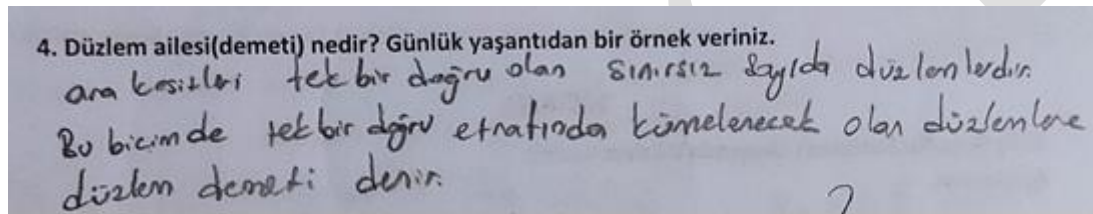 4. Düzlem ailesi(demeti) nedir? Günlük yaşantıdan bir örnek veriniz.
ara kesitleri tek bir doğru olan sınırsız sayıda düzlemlerdir.
Bu biçimde tek bir doğru etrafında kümelenecek olan düzlemlere
düzlem demeti denir.
?